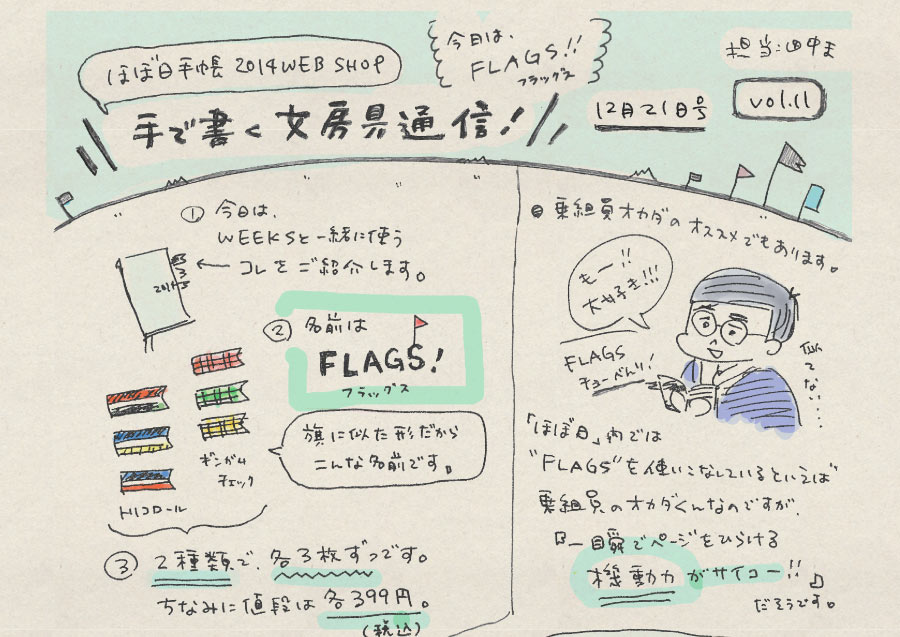 ほぼ日手帳 2014 WEB SHOP
今日は、
FLAGS!!
フラッグス
担当:田中ま
手で書く文房具通信!
12月21日号
vol.11
① 今日は、
WEEKSと一緒に使う
コレをご紹介します。
2014
② 名前は
FLAGS!
フラッグス
旗に似た形だから
こんな名前です。
ギンガム
チェック
トリコロール
③ 2種類で、各3枚ずつです。
ちなみに値段は各399円。
(税込)
乗組員オカダのオススメでもあります。
もー!!
大好き!!!
FLAGS
チョーべんり!
似てない…
「ほぼ日」内では
"FLAGS"を使いこなしているといえば
乗組員のオカダくんなのですが、
『一瞬でページをひらける
機動力がサイコー!!』
だそうです。